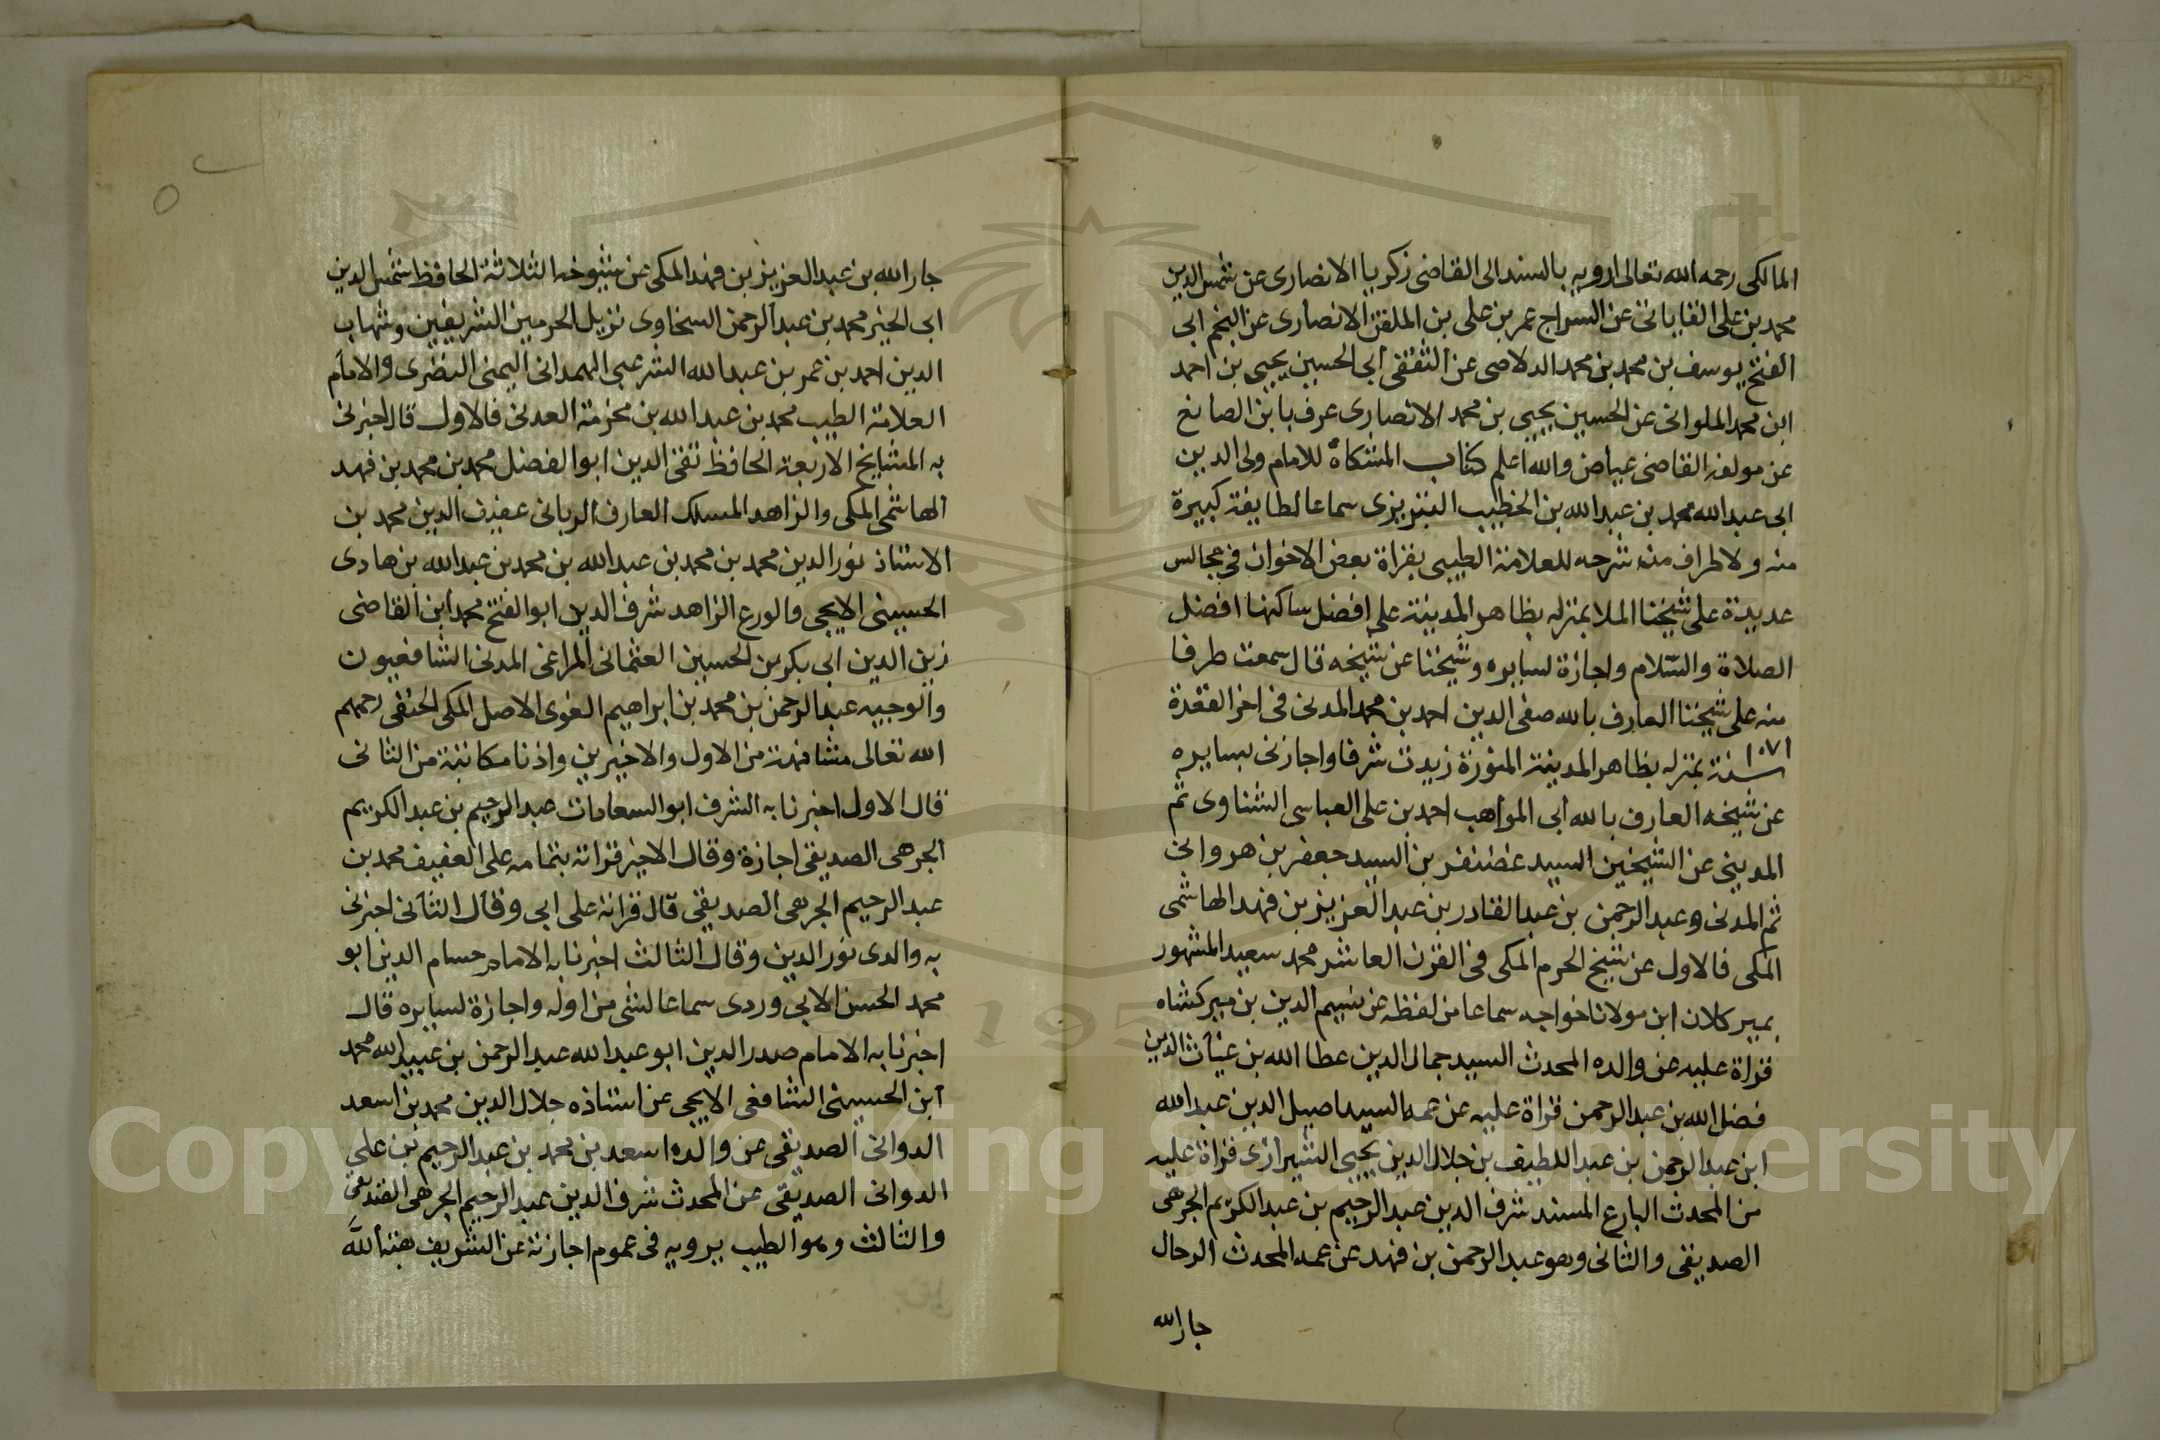 المالكى رحمه الله تعالى ارويه بالسند الى القاضى زكريا الانصارى عن شمس الدين
محمد بن على القاياتى عن السراج عمر بن على بن الملقن الانصارى عن النجم ابى
الفتح يوسف بن محمد بن محمد الدلاصى عن التقفى أبى الحسين يحيى بن احمد
ابن محمد الملوانى عن الحسين يحيى بن محمد الانصارى عرف بابن الصايغ
عن مولفه القاضى عياض والله اعلم كتاب المشكاة للامام ولى الدين
ابى عبد الله محمد بن عبد الله بن الخطيب التبريزى سماعا لطايفة كبيرة
منه ولاطراف من شرحه للعلامة الطيبى بقراة بعض الاخوان فى مجالس
عديدة على شيخنا الملا بمنزله بظاهر المدينة على افضل ساكنها افضل
الصلاة والسلام واجازة لسايره وشيخنا عن شيخه قال سمعت طرفا
منه على شيخنا العارف بالله صفى الدين احمد بن محمد المدنى فى اخر القعدة
١٠٧١
سنة بمنزله بظاهر المدينة المنورة زيدت شرفا واجازنى بسايره
عن شيخه العارف بالله أبى المواهب احمد بن على العباسى الشناوى ثم
المدينى عن الشيخين السيد غضنفر بن السيد جعفر بن هروانى
ثم المدنى وعبد الرحمن بن عبد القادر بن عبد العزيز بن فهد الهاشمى
المكى فالاول عن شيخ الحرم المكى فى القرن العاشر محمد سعيد المشهور
بمير كلان ابن مولانا خواجه سماعا من لفظه عن نسيم الدين بن ميركشاه
قراة عليه عن والده المحدث السيد جمال الدين عطا الله بن غياث الدين
فضل الله بن عبد الرحمن قراة عليه عن عمه السيد اصيل الدين عبد الله
ابن عبد الرحمن بن عبد اللطيف بن جلال الدين يحيى الشيرازى قراة عليه
من المحدث البارع المسند شرف الدين عبد الرحيم بن عبد الكريم الجرهى
الصديقى والثانى وهو عبد الرحمن بن فهد عن عمه المحدث الرحال
جار الله
جار الله بن عبد العزيز بن فهد المكى عن شيوخه الثلاثة الحافظ شمس الدين
ابى الخير محمد بن عبد الرحمن السخاوى نزيل الحرمين الشريفين وشهاب
الدين احمد بن عمر بن عبد الله الشرعبى الهمدانى اليمنى النضرى والامام
العلامة الطيب محمد بن عبد الله بن مخرمة العدنى فالاول قال اخبرنى
به المشايخ الاربعة الحافظ تقى الدين ابو الفضل محمد بن محمد بن فهد
الهاشمى المكى والزاهد المسلك العارف الربانى عفيف الدين محمد بن
الاستاذ نور الدين محمد بن محمد بن عبد الله بن محمد بن عبد الله بن هادى
الحسينى الايجى والورع الزاهد شرف الدين ابو الفتح محمد ابن القاضى
زين الدين ابى بكر بن الحسين العثمانى المراغى المدنى الشافعيون
والوجيه عبد الرحمن بن محمد بن ابراهيم الغوى الاصل المكى الحنفى رحمهم
الله تعالى مشافهة من الاول والاخيرين واذنا مكاتبة من الثانى
قال الاول اخبرنا به الشرف ابو السعادات عبد الرحيم بن عبد الكريم
الجرهى الصديقى اجازة وقال الاخير قراته بتمامه على العفيف محمد بن
عبد الرحيم الجرهى الصديقى قال قراته على ابى وقال الثانى اخبرنى
به والدى نور الدين وقال الثالث اخبرنا به الامام حسام الدين ابو
محمد الحسن الابيوردى سماعا لشى من اوله واجازة لسايره قال
اخبرنا به الامام صدر الدين ابو عبد الله عبد الرحمن بن عبيد الله محمد
ابن الحسينى الشافعى الايجى عن استاذه جلال الدين محمد بن اسعد
الدوانى الصديقى عن والده اسعد بن محمد بن عبد الرحيم بن على
الدوانى الصديقى عن المحدث شرف الدين عبد الرحيم الجرهى الصديقى
والثالث وهو الطيب يرويه فى عموم اجازته عن الشريف هبة الله
Copyright © King Saud University
195